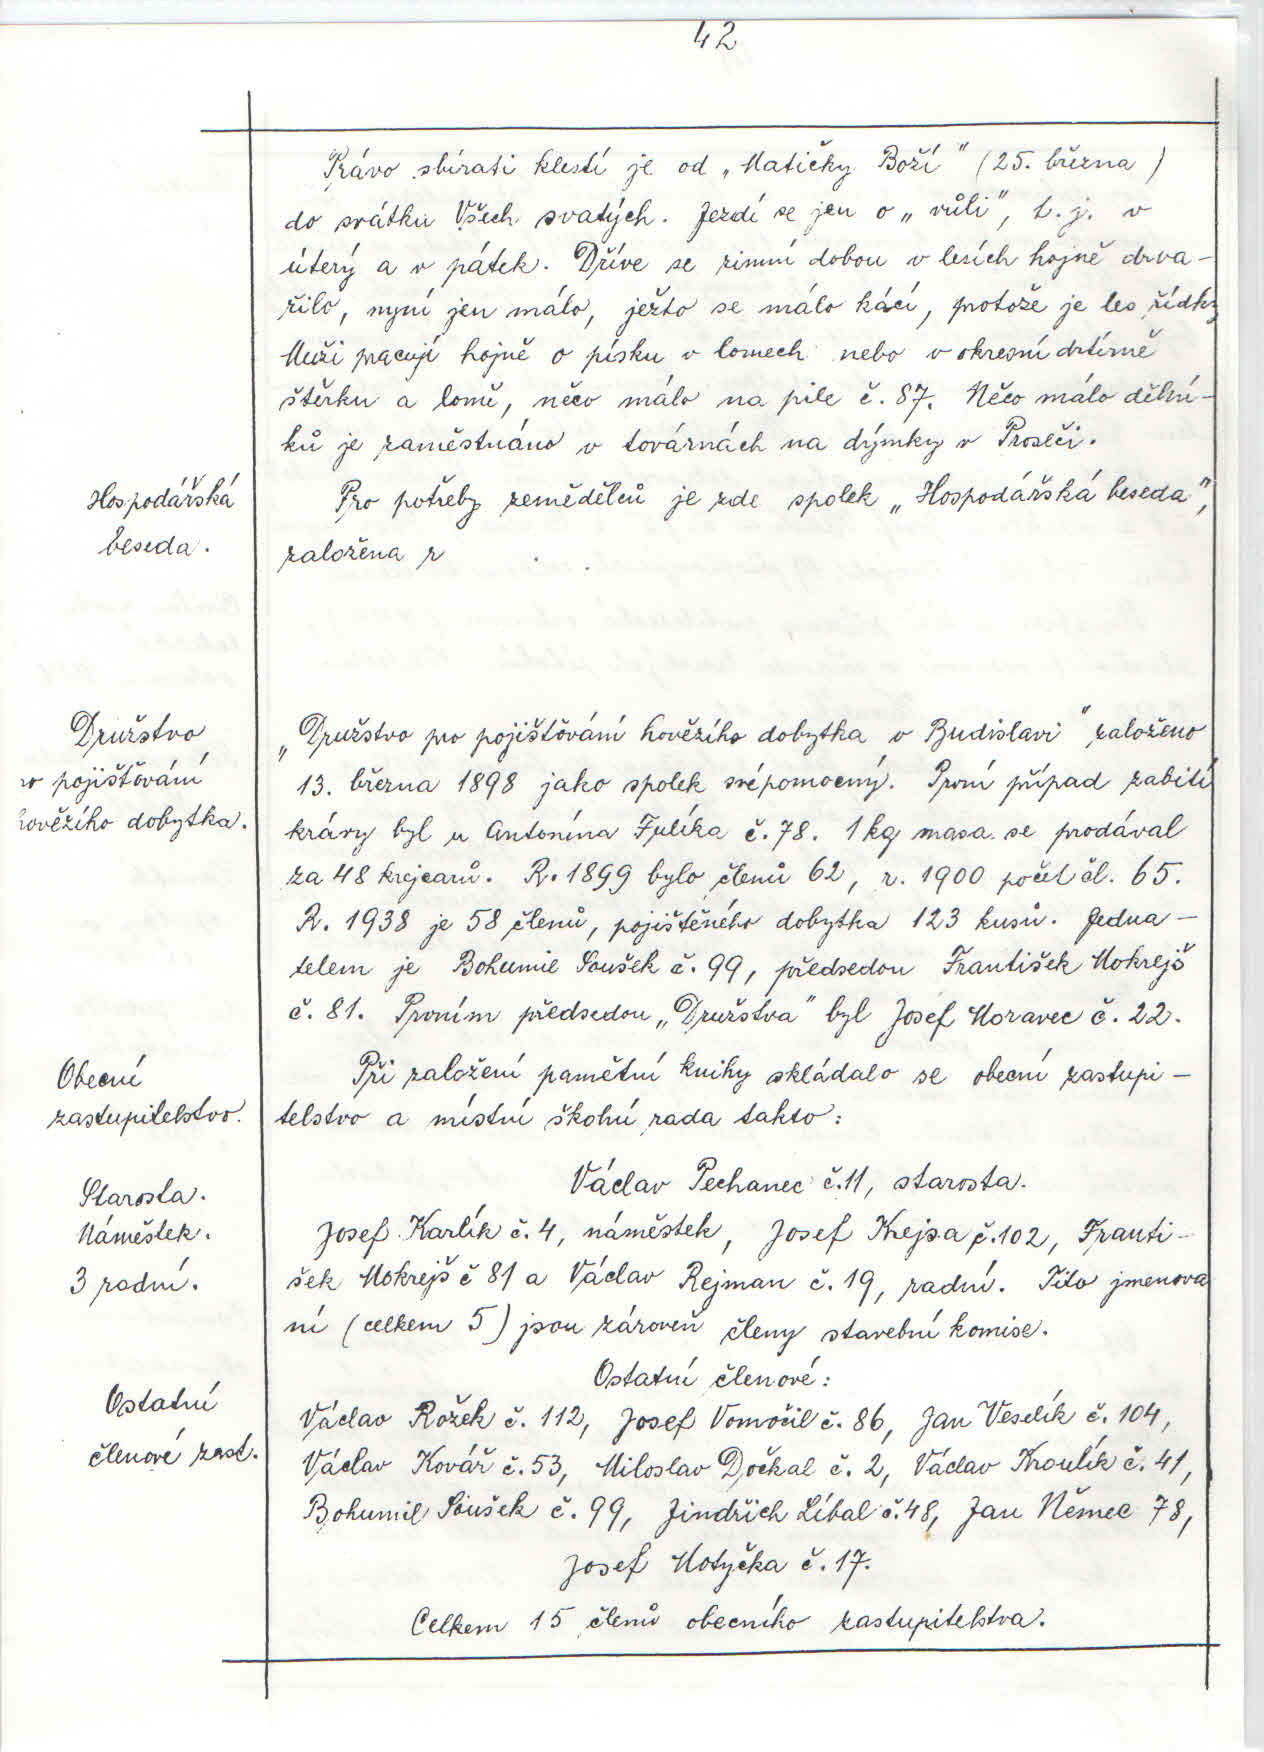 42
Právo sbírati klestí je od „Matičky Boží" (25. března)
do svátku Všech svatých. Jezdí se jen o „vůli", t. j. v
úterý a v pátek. Dříve se zimní dobou v lesích hojně drva-
řilo, nyní jen málo, ježto se málo kácí, protože je les řídký
Muži pracují hojně o písku v lomech nebo v okresní drtírně
štěrku a lomě, něco málo na pile č. 87. Něco málo dělní-
ků je zaměstnáno v továrnách na dýmky v Proseči.
Hospodářská
beseda.
Pro potřeby zemědělců je zde spolek „Hospodářská beseda",
založena r
Družstvo
ro pojišťování
hovězího dobytka.
„Družstvo pro pojišťování hovězího dobytka v Budislavi" založeno
13. března 1898 jako spolek svépomocný. První případ zabití
krávy byl u Antonína Fulíka č. 78. 1 kg masa se prodával
za 48 krejcarů. R. 1899 bylo členů 62, r. 1900 počet čl. 65.
R. 1938 je 58 členů, pojištěného dobytka 123 kusů. Jedna-
telem je Bohumil Soušek č. 99, předsedou František Mokrejš
č. 81. Prvním předsedou „Družstva" byl Josef Moravec č. 22.
Obecní
zastupitelstvo.
Při založení pamětní knihy skládalo se obecní zastupi-
telstvo a místní školní rada takto:
Starosta.
Náměstek.
3 radní.
Václav Pechanec č. 11, starosta.
Josef Karlík č. 4, náměstek, Josef Krejsa č. 102, Franti-
šek Mokrejš č 81 a Václav Rejman č. 19, radní. Tito jmenova
ní (celkem 5) jsou zároveň členy stavební komise.
Ostatní
členové zast.
Ostatní členové:
Václav Rožek č. 112, Josef Vomočil č. 86, Jan Veselík č. 104,
Václav Kovář č. 53, Miloslav Dočkal č. 2, Václav Kroulík č. 41,
Bohumil Soušek č. 99, Jindřich Líbal č. 48, Jan Němec 78,
Josef Motyčka č. 17.
Celkem 15 členů obecního zastupitelstva.